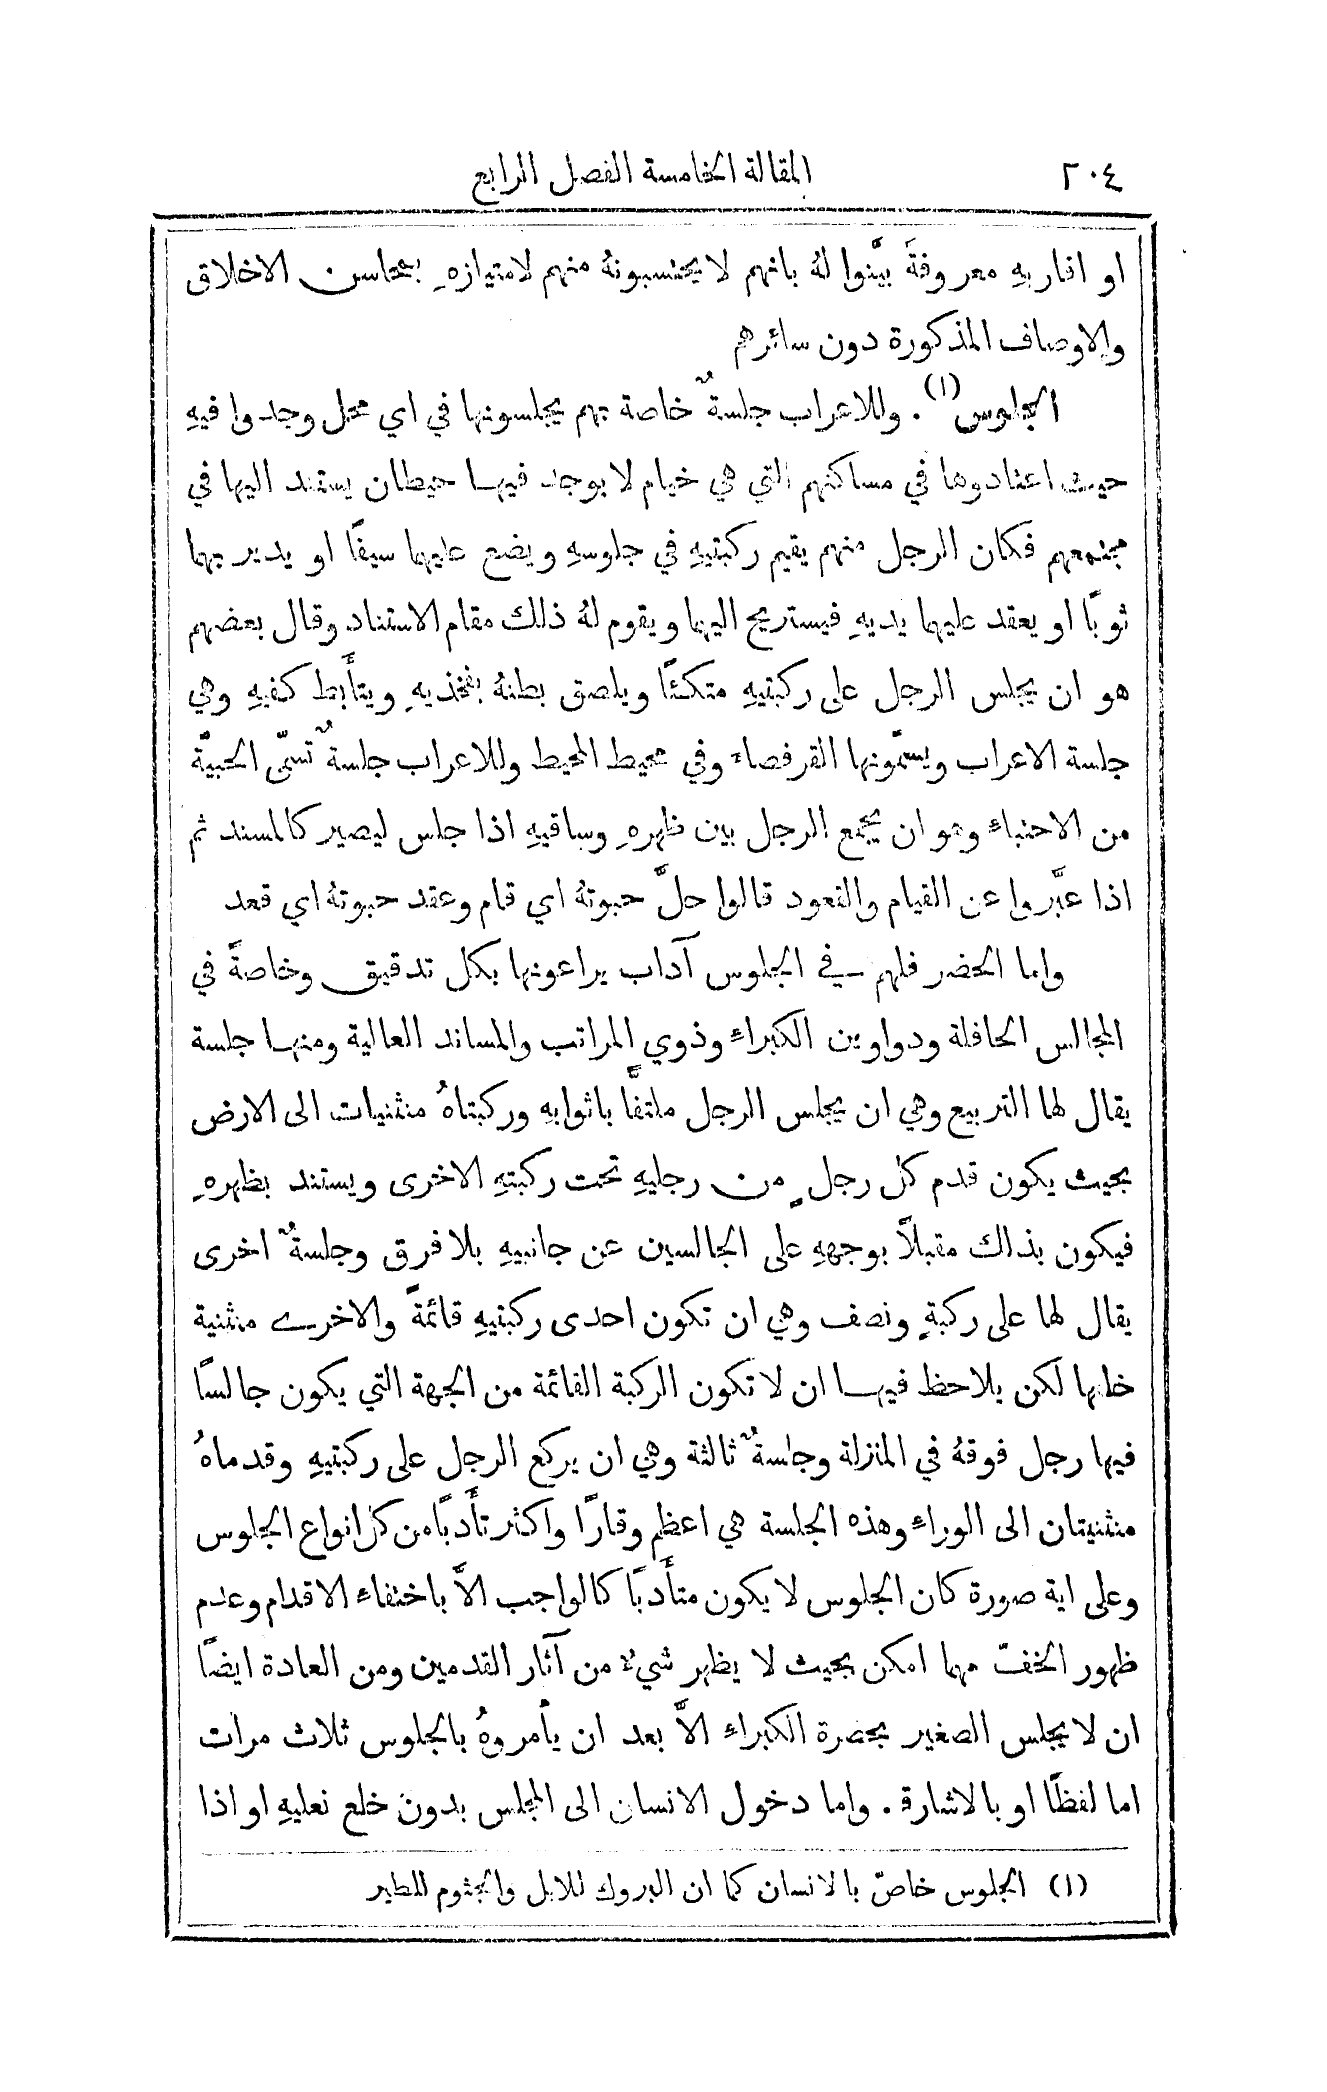 ٢٠٤ المقالة الخامسة الفصل الرابع
او اقاربهِ معروفةَ بيَّنوا لهُ بانهم لا يحتسبونهُ منهم لامتيازهِ بمحاسن الاخلاق
والاوصاف المذكورة دون سائرهم
الجلوس(١). وللاعراب جلسةٌ خاصة بهم يجلسونها في اي محل وجدوا فيهِ
حيث اعتادوها في مساكنهم التي هي خيام لا يوجد فيها حيطان يستند اليها في
مجتمعهم فكان الرجل منهم يقيم ركبتيهِ في جلوسهِ ويضع عليها سيفًا او يدير بها
ثوبًا او يعقد عليها يديهِ فيستريح اليها ويقوم لهُ ذلك مقام الاستناد وقال بعضهم
هو ان يجلس الرجل على ركبتيهِ متكئًا ويلصق بطنهُ بفخذيهِ ويتأَبط كفيهِ وهي
جلسة الاعراب ويسمّونها القرفصاء وفي محيط المحيط وللاعراب جلسةٌ تسمّى الحبيَّة
من الاحتباءِ وهو ان يجمع الرجل بين ظهرهِ وساقيهِ اذا جلس ليصير كالمسند ثم
اذا عبَّروا عن القيام والقعود قالوا حلَّ حبوتهُ اي قام وعقد حبوتهُ اي قعد
واما الحضر فلهم في الجلوس آداب يراعونها بكل تدقيق وخاصةً في
المجالس الحافلة ودواوين الكبراءِ وذوي المراتب والمساند العالية ومنها جلسة
يقال لها التربيع وهي ان يجلس الرجل ملتفًّا باثوابهِ وركبتاهُ منثنيات الى الارض
بحيث يكون قدم كل رجلٍ من رجليهِ تحت ركبتهِ الاخرى ويستند بظهرهِ
فيكون بذلك مقبلاً بوجههِ على الجالسين عن جانبيهِ بلا فرق وجلسةٌ اخرى
يقال لها على ركبةٍ ونصف وهي ان تكون احدى ركبتيهِ قائمةً والاخرى منثنية
خلفها لكن يلاحظ فيها ان لا تكون الركبة القائمة من الجهة التي يكون جالسًا
فيها رجل فوقهُ في المنزلة وجلسةٌ ثالثة وهي ان يركع الرجل على ركبتيهِ وقدماهُ
منثنيتان الى الوراءِ وهذه الجلسة هي اعظم وقارًا واكثر تأَدبًا من كل انواع الجلوس
وعلى اية صورة كان الجلوس لا يكون متأَدبًا كالواجب الاَّ باختفاءِ الاقدام وعدم
ظهور الخفّ مهما امكن بحيث لا يظهر شيءٌ من آثار القدمين ومن العادة ايضًا
ان لا يجلس الصغير بحضرة الكبراءِ الاَّ بعد ان يأْمروهُ بالجلوس ثلاث مرات
اما لفظًا او بالاشارة. واما دخول الانسان الى المجلس بدون خلع نعليهِ او اذا
(١) الجلوس خاصّ بالانسان كما ان البروك للابل والجثوم للطير